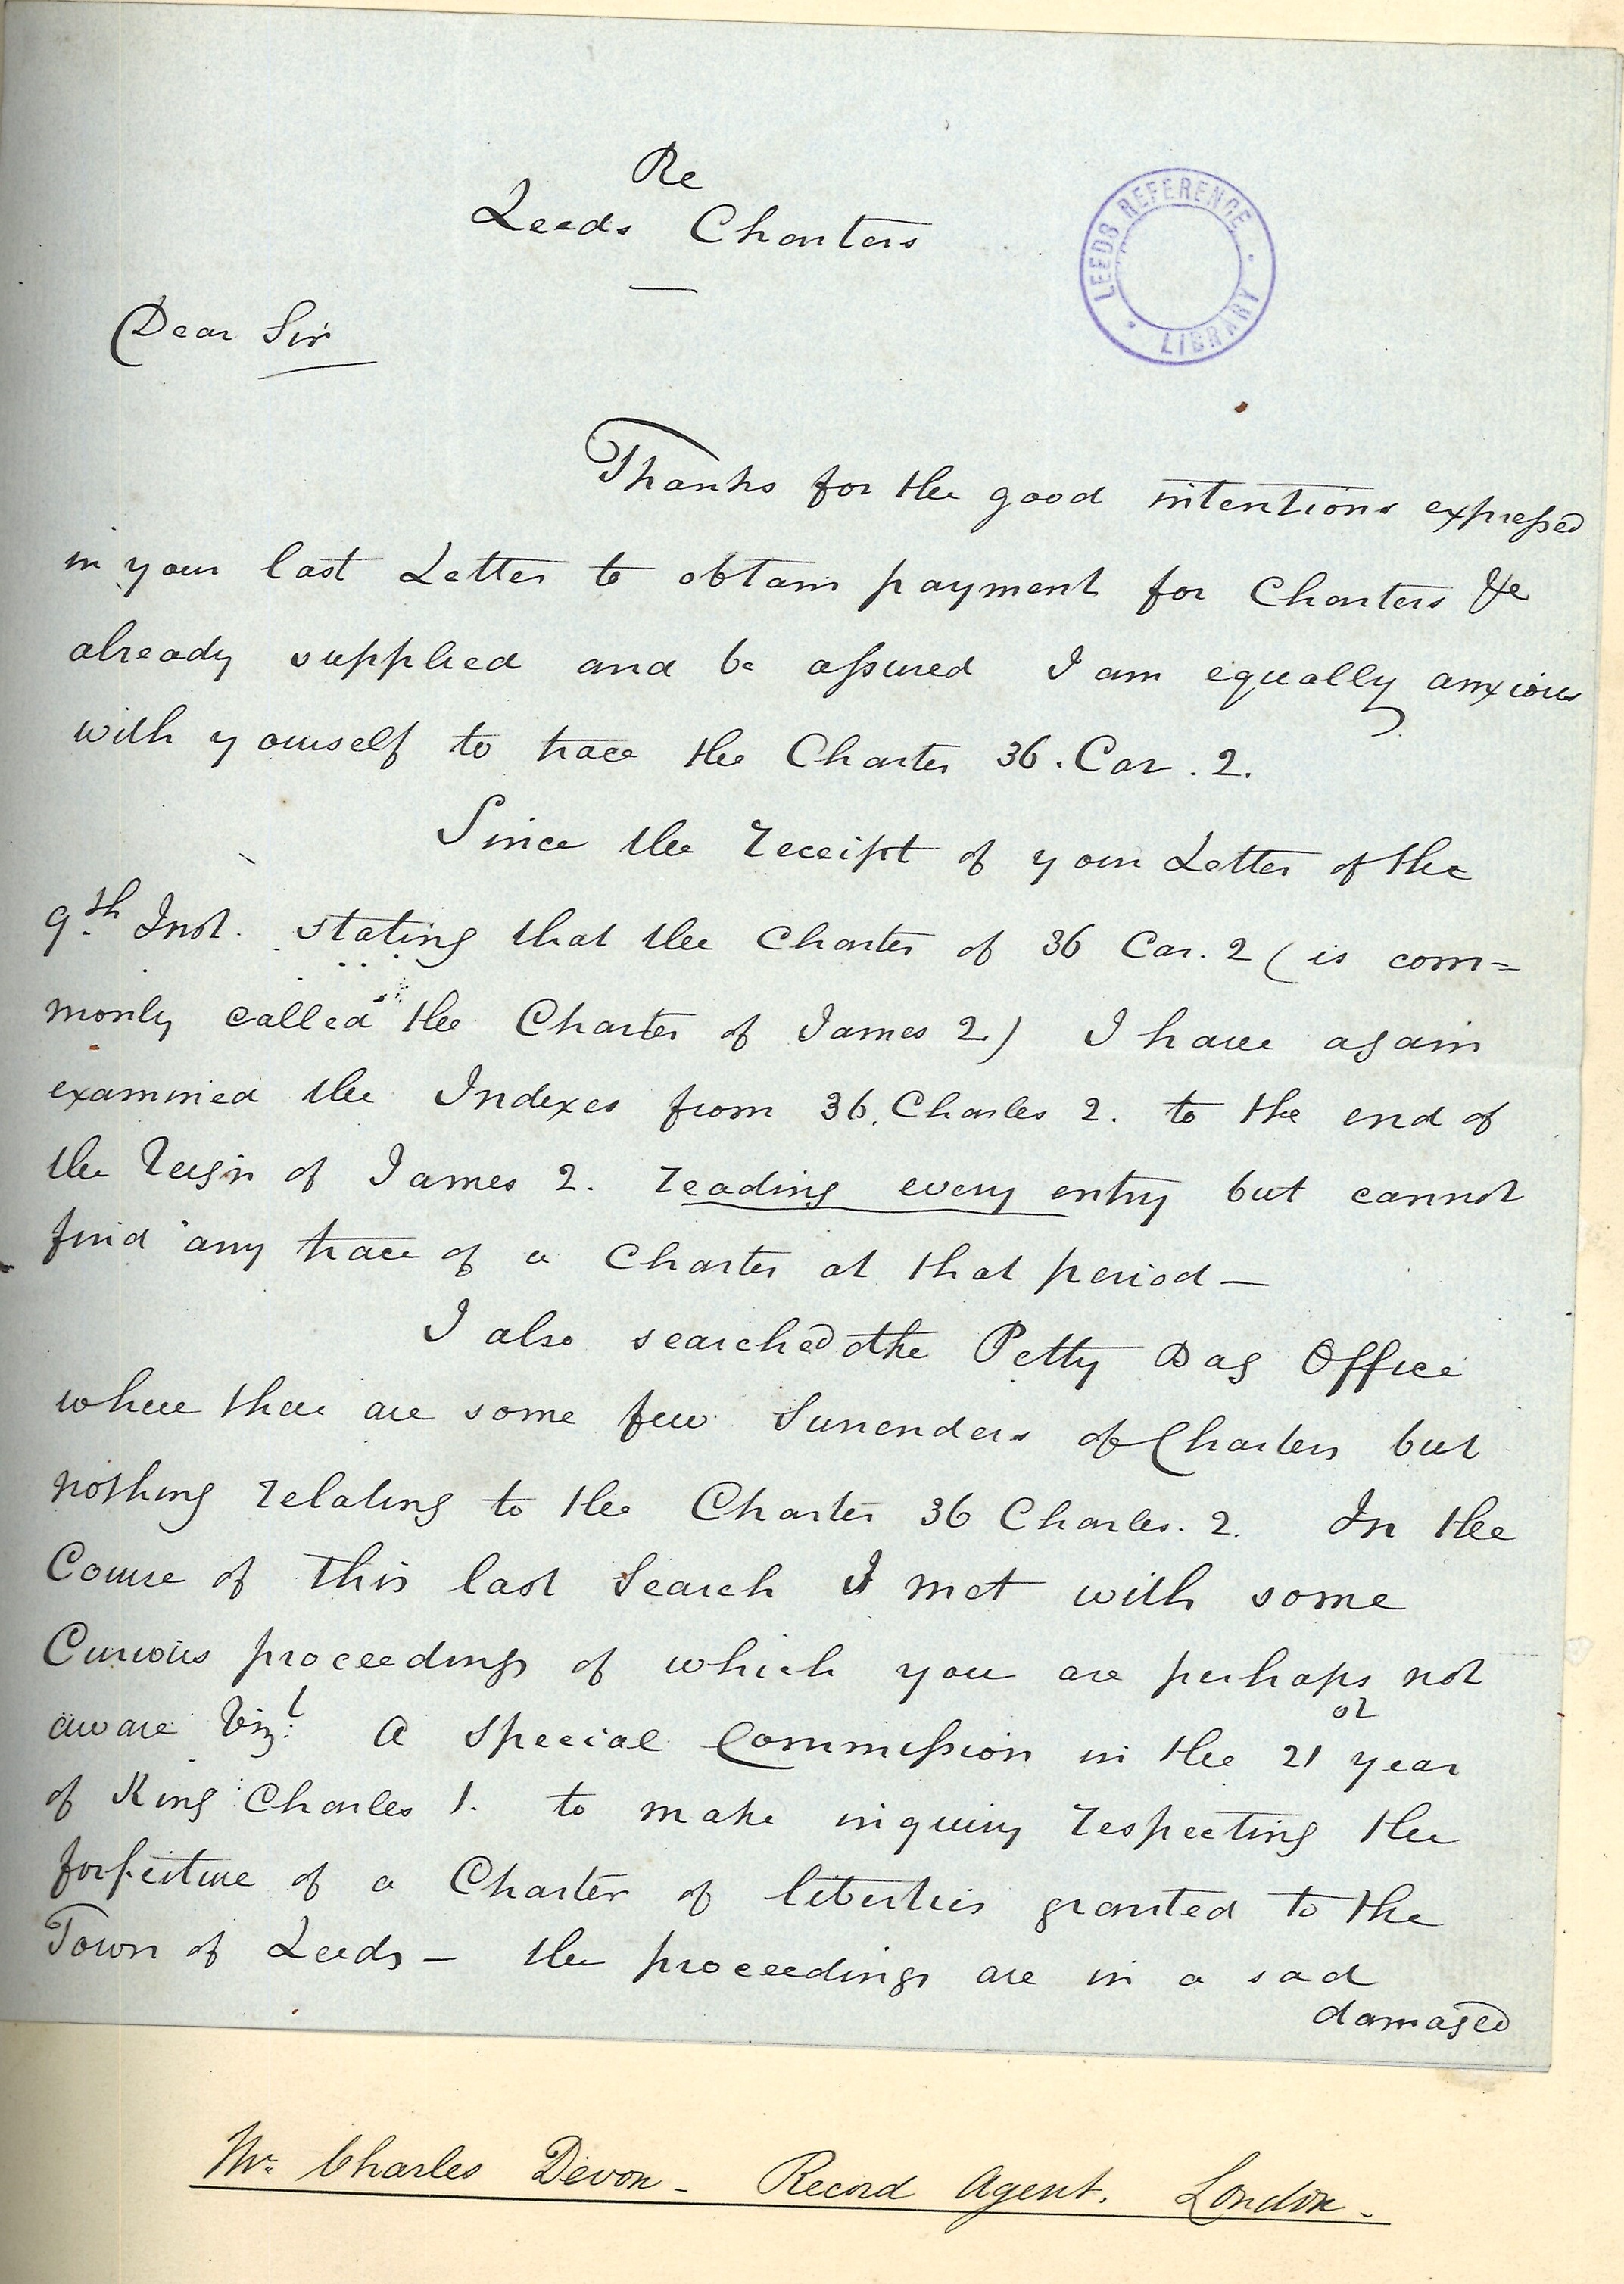 Re
Leeds Charters
LEEDS REFERENCE LIBRARY
Dear Sir
Thanks for the good intentions expressed
in your last Letter to obtain payment for Charters &c
already supplied and be assured I am equally anxious
with yourself to trace the Charter 36. Car. 2.
Since the receipt of your Letter of the
9th Inst. stating that the Charter of 36 Car. 2 (is com=
monly called the Charter of James 2) I have again
examined the Indexes from 36. Charles 2. to the end of
the Reign of James 2. reading every entry but cannot
find any trace of a Charter at that period —
I also searched the Petty Bag Office
where there are some few Surrenders of Charters but
nothing relating to the Charter 36 Charles. 2. In the
Course of this last Search I met with some
Curious proceedings of which you are perhaps not
aware Vizt. A Special Commission in the 21st year
of King Charles 1. to make inquiry respecting the
forfeiture of a Charter of liberties granted to the
Town of Leeds — the proceedings are in a sad
damaged
Mr. Charles Devon - Record Agent. London -